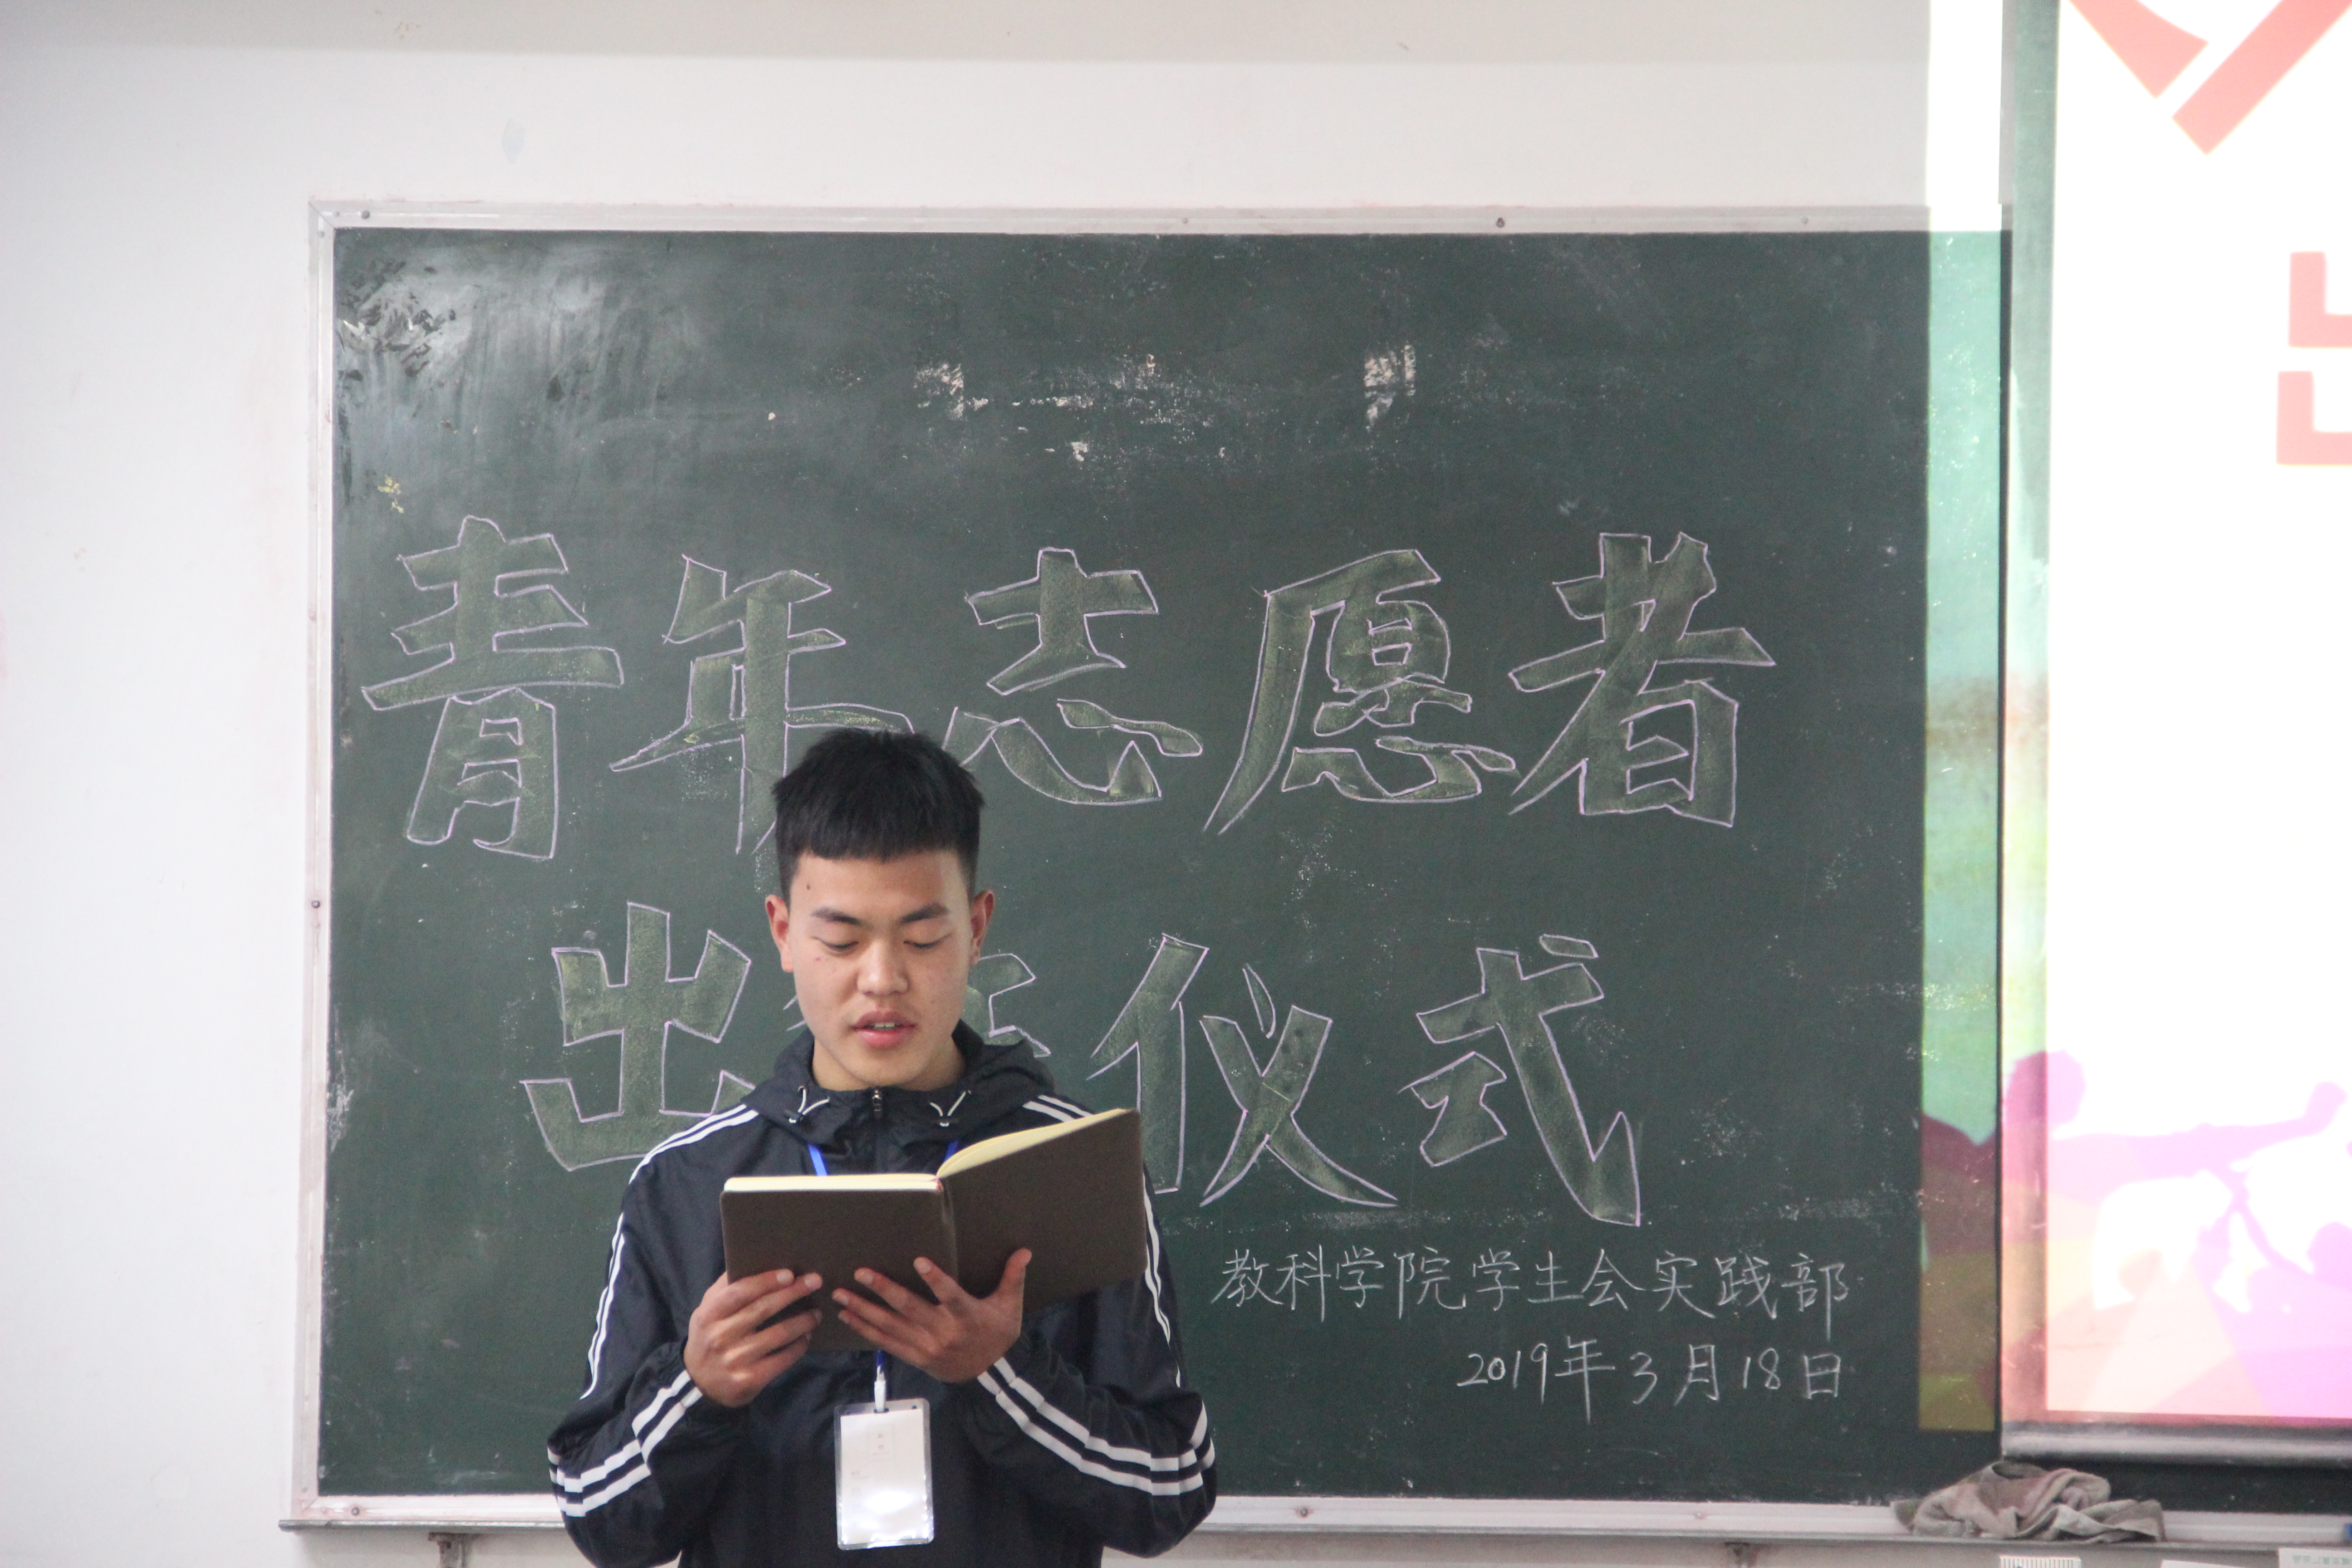 青年志愿者
出 仪式
教科学院学生会实践部
2019年3月18日